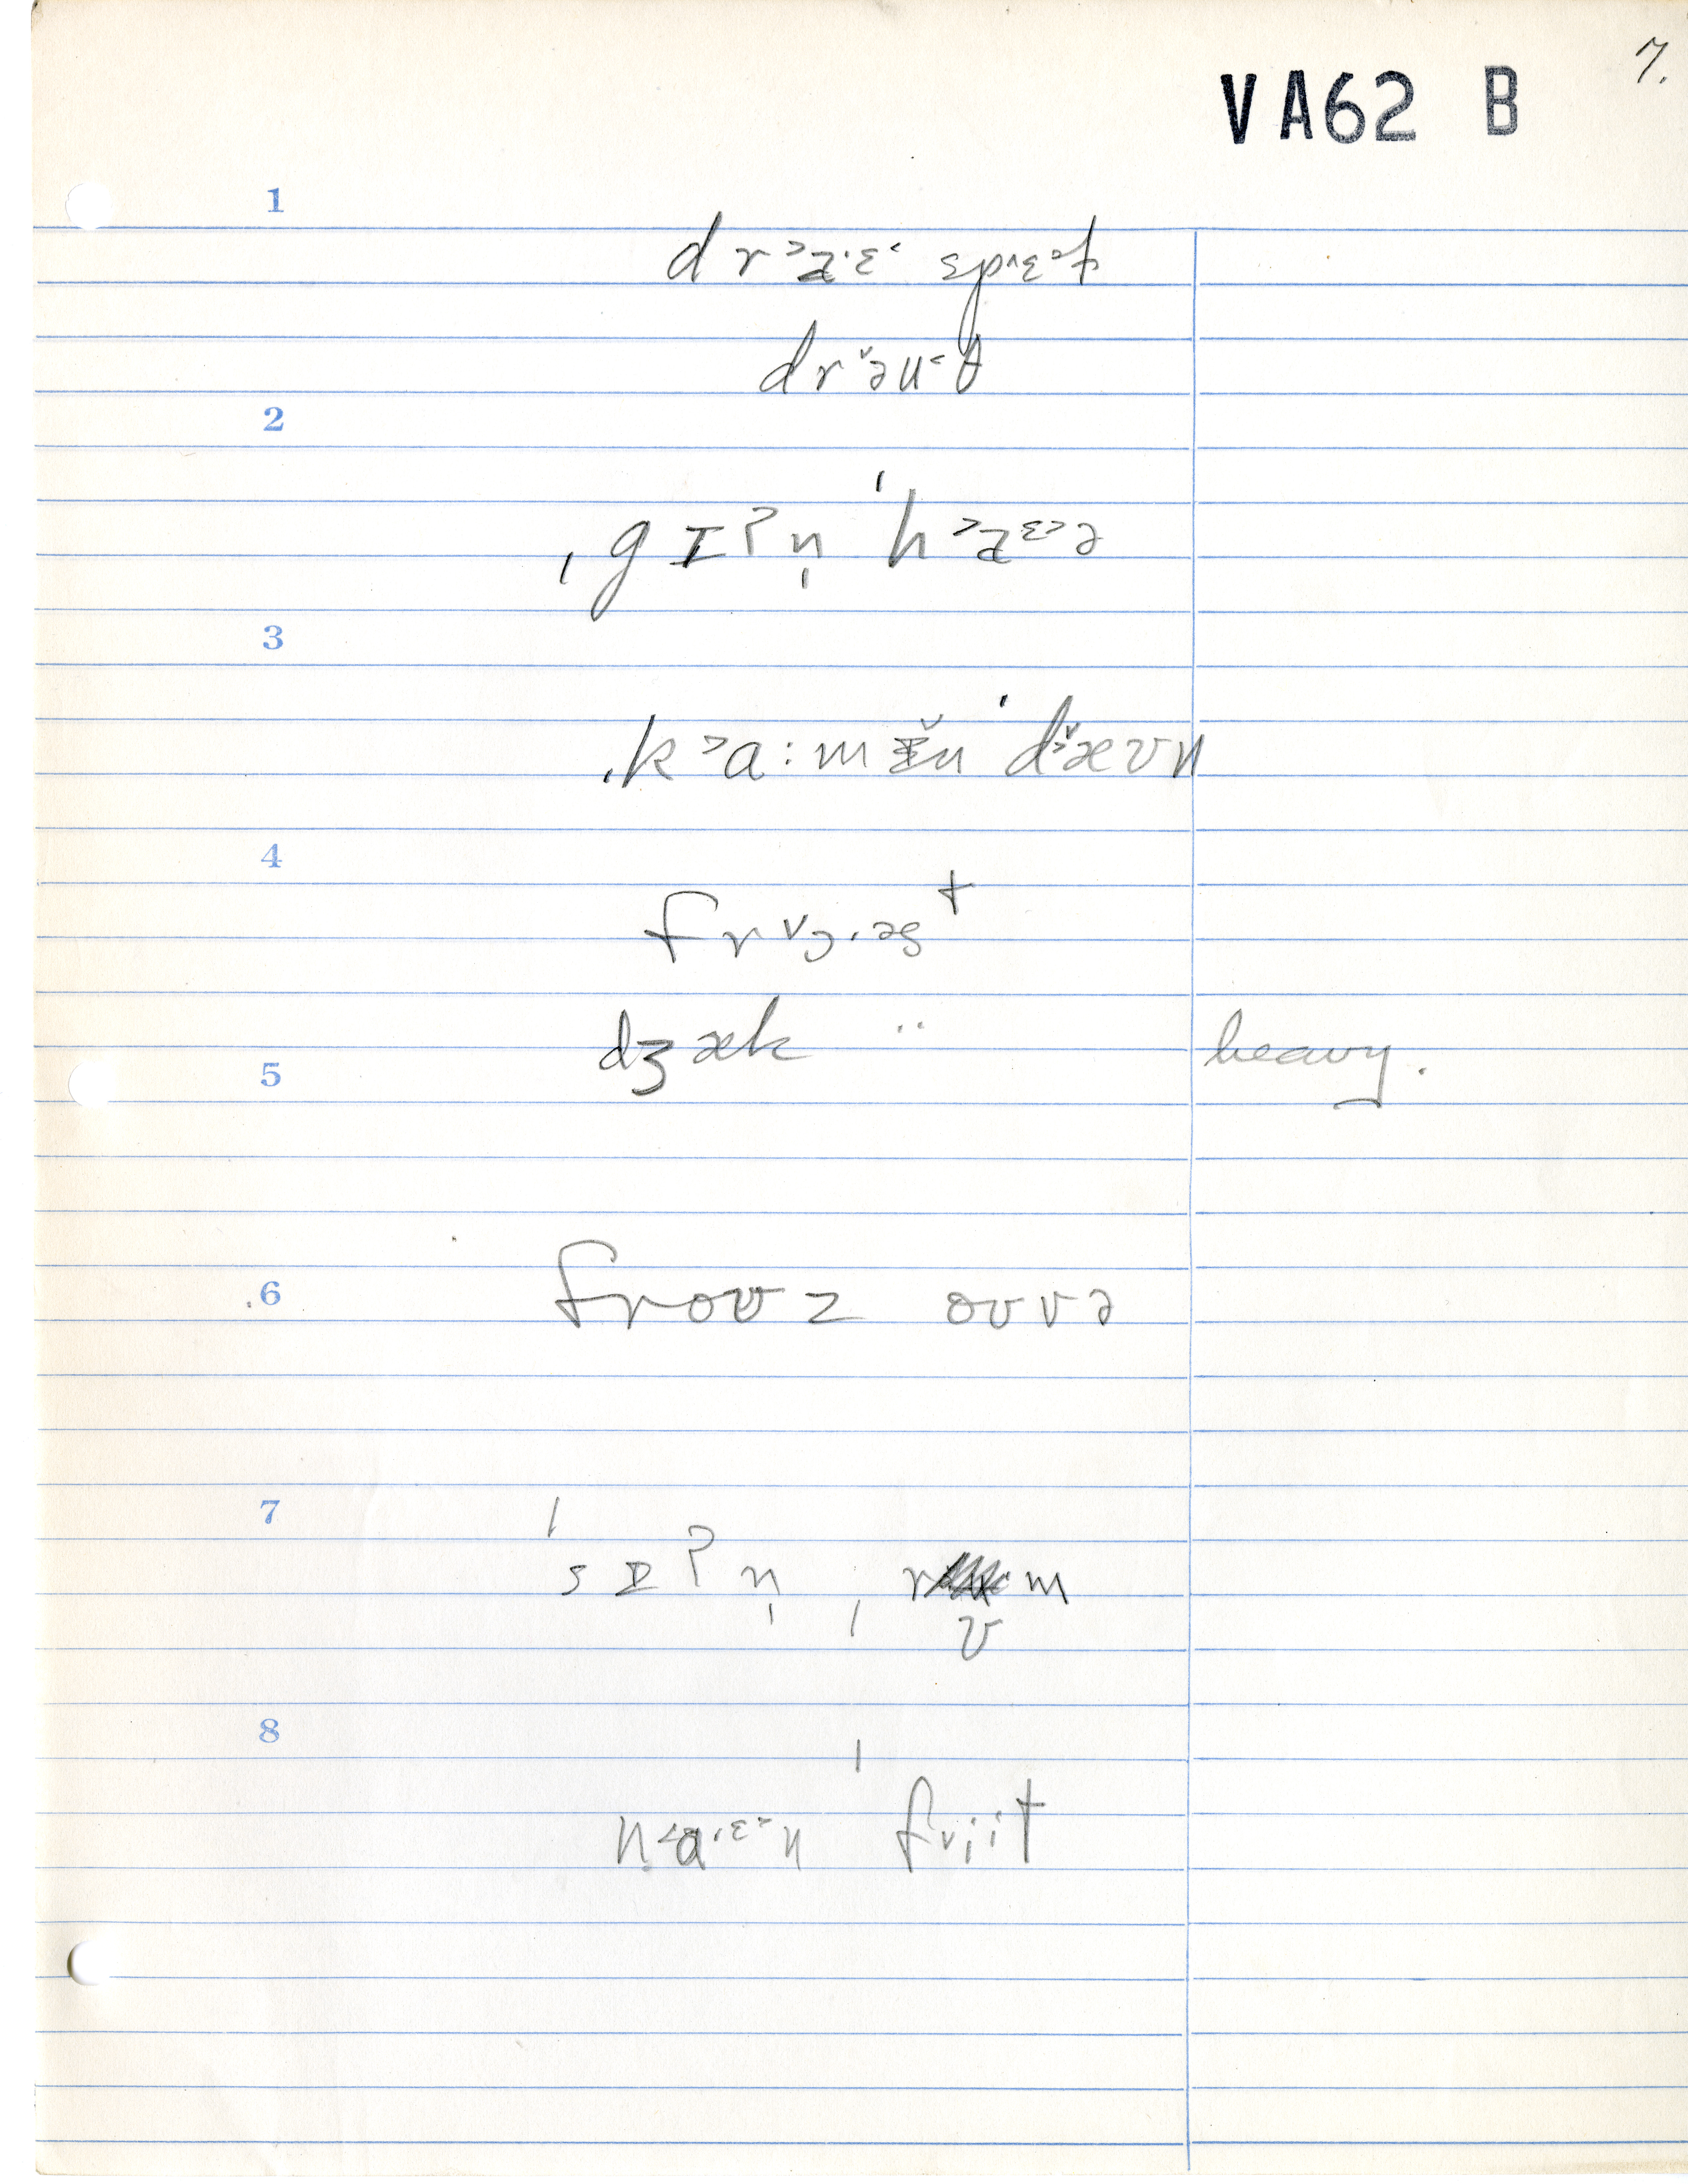 7.
VA62 B
1
dr˃a̠.ɛ˂ spɛt
drə̌u˂θ
2
ˌgɪʔn̩ ˈh˃a̠ɛ˃ə
3
ˌk˃a:mɪ̌n ˈdæʊn
4
frᵛɔ.əst
dʒæk ¨ heavy.
5
6
froʊz oʊvə
7
ˈsɪʔn̩ ˌrʊm
8
n˂a.ɛ˃n ˈfriit